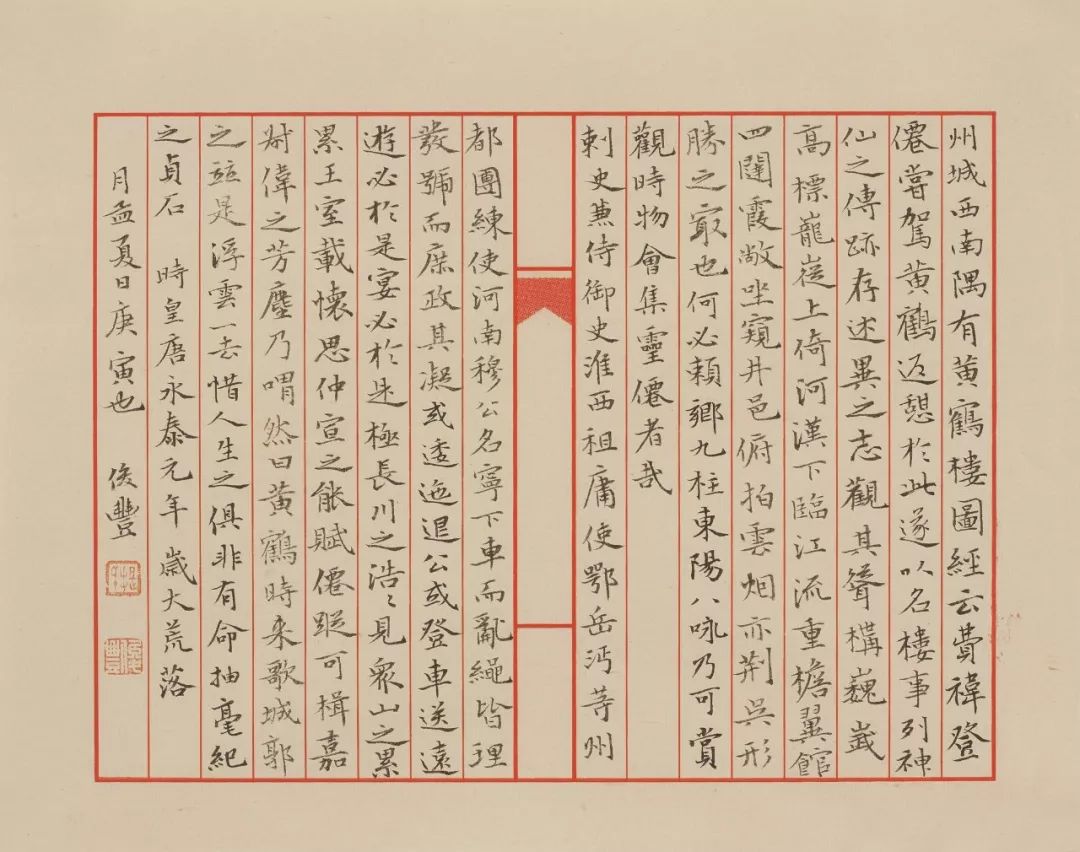 州城西南隅有黄鶴樓圖經云費禕登
僊嘗駕黄鶴返憩於此遂以名樓事列神
仙之傳跡存述異之志觀其聳構巍峩
高標巃嵸上倚河漢下臨江流重檐翼館
四闥霞敞坐窺井邑俯拍雲烟亦荆吳形
勝之㝡也何必賴鄉九柱東陽八咏乃可賞
觀時物會集靈僊者哉
刺史兼侍御史淮西租庸使鄂岳沔等州
都團練使河南穆公名寧下車而亂繩皆理
發號而庶政其凝或逶迤退公或登車送遠
遊必於是宴必於是極長川之浩〻見衆山之累
累王室載懷思仲宣之能賦僊蹤可揖嘉
尉偉之芳塵乃喟然曰黄鶴時来歌城郭
之竝是浮雲一去惜人生之俱非有命抽毫紀
之貞石 時皇唐永泰元年 歲大荒落
月孟夏日庚寅也 俟豐